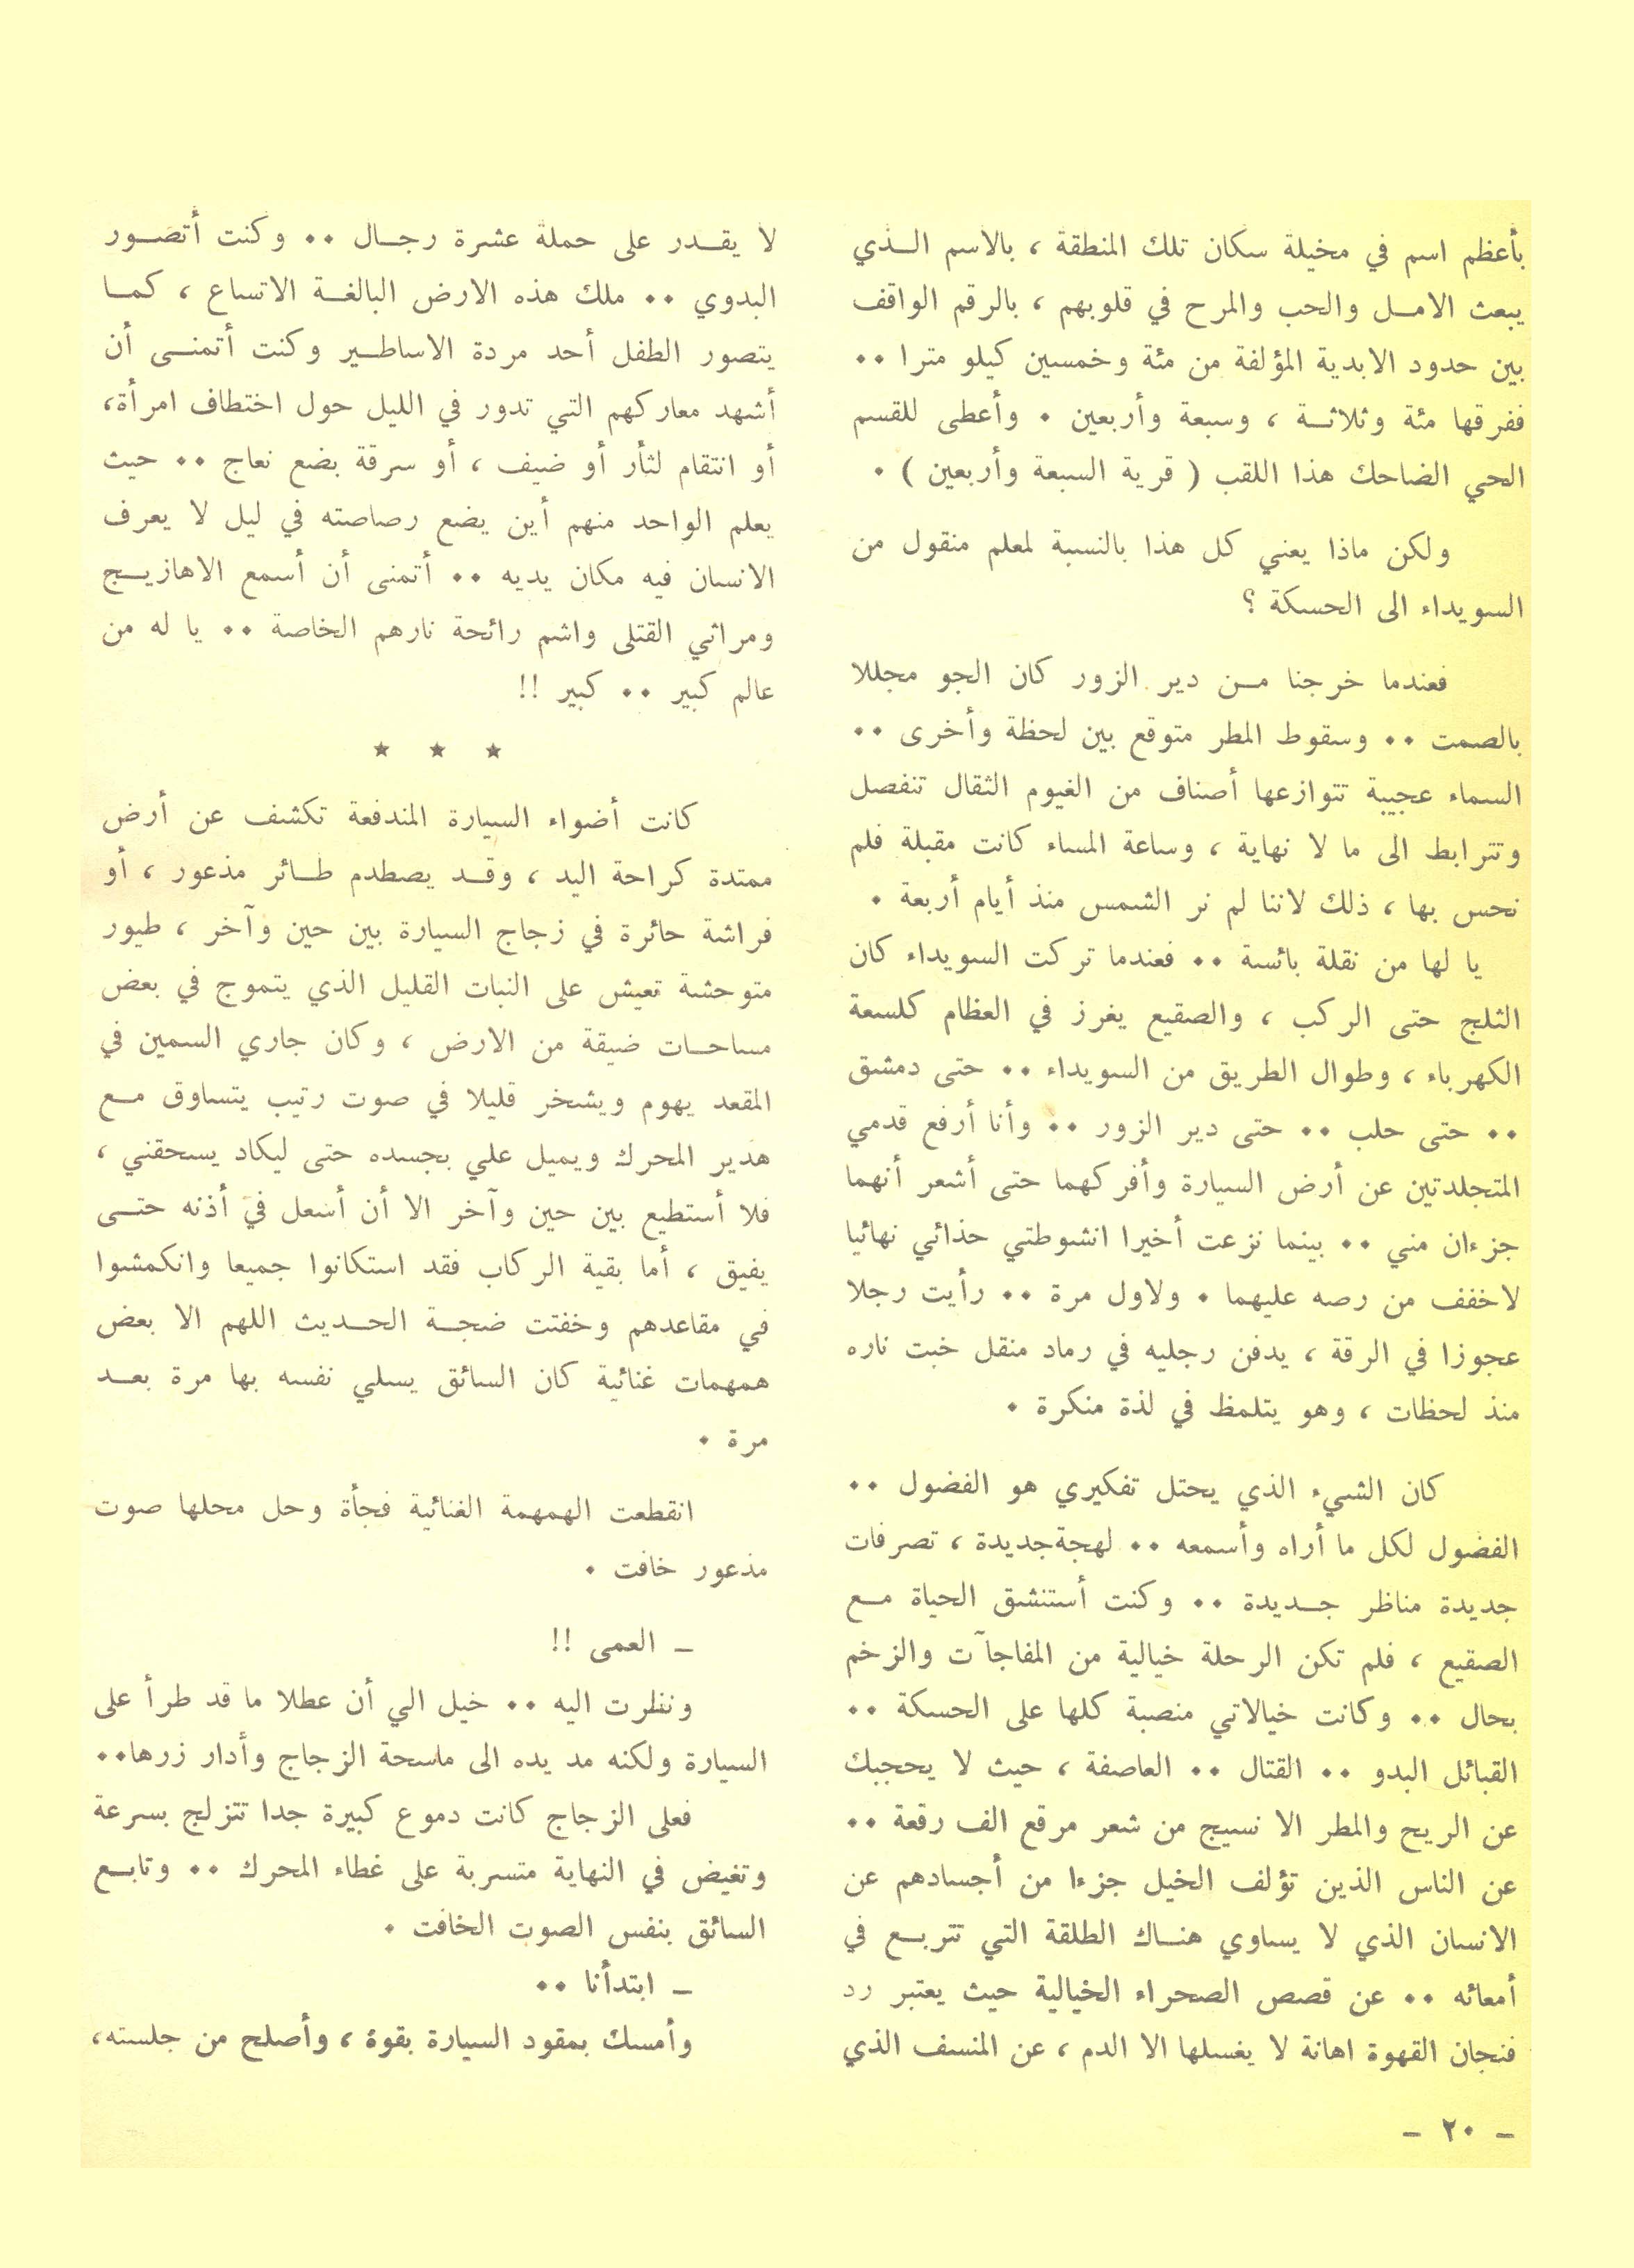 بأعظم اسم في مخيلة سكان تلك المنطقة ، بالاسم الـذي
يبعث الامـل والحب والمرح في قلوبهم ، بالرقم الواقف
بين حدود الابدية المؤلفة من مئة وخمسين كيلو مترا ٠٠
ففرقها مئة وثلاثـة ، وسبعة وأربعين ٠ وأعطى للقسم
الحي الضاحك هذا اللقب ( قرية السبعة وأربعين ) ٠
ولكن ماذا يعني كل هذا بالنسبة لمعلم منقول من
السويداء الى الحسكة ؟
فعندما خرجنا مـن دير الزور كان الجو مجللا
بالصمت ٠٠ وسقوط المطر متوقع بين لحظة وأخرى ٠٠
السماء عجيبة تتوازعها أصناف من الغيوم الثقال تنفصل
وتترابط الى ما لا نهاية ، وساعة المساء كانت مقبلة فلم
نحس بها ، ذلك لاننا لم نر الشمس منذ أيام أربعة ٠
يا لها من نقلة بائسة ٠٠ فعندما تركت السويداء كان
الثلج حتى الركب ، والصقيع يغرز في العظام كلسعة
الكهرباء ، وطوال الطريق من السويداء ٠٠ حتى دمشق
٠٠ حتى حلب ٠٠ حتى دير الزور ٠٠ وأنا أرفع قدمي
المتجلدتين عن أرض السيارة وأفركهما حتى أشعر أنهما
جزءان مني ٠٠ بينما نزعت أخيرا انشوطتي حذائي نهائيا
لاخفف من رصه عليهما ٠ ولاول مرة ٠٠ رأيت رجلا
عجوزا في الرقة ، يدفن رجليه في رماد منقل خبت ناره
منذ لحظات ، وهو يتلمظ في لذة منكرة ٠
كان الشيء الذي يحتل تفكيري هو الفضول ٠٠
الفضول لكل ما أراه وأسمعه ٠٠ لهجة جديدة ، تصرفات
جديدة مناظر جـديدة ٠٠ وكنت أستنشق الحياة مـع
الصقيع ، فلم تكن الرحلة خيالية من المفاجآت والزخم
بحال ٠٠ وكانت خيالاتي منصبة كلها على الحسكة ٠٠
القبائل البدو ٠٠ القتال ٠٠ العاصفة ، حيث لا يحجبك
عن الريح والمطر الا نسيج من شعر مرقع الف رقعة ٠٠
عن الناس الذين تؤلف الخيل جزءا من أجسادهم عن
الانسان الذي لا يساوي هنـاك الطلقة التي تتربـع في
أمعائه ٠٠ عن قصص الصحراء الخيالية حيث يعتبر رد
فنجان القهوة اهانة لا يغسلها الا الدم ، عن المنسف الذي
لا يقـدر على حملة عشرة رجـال ٠٠ وكنت أتصـور
البدوي ٠٠ ملك هذه الارض البالغـة الاتساع ، كمـا
يتصور الطفل أحد مردة الاساطـير وكنت أتمنـى أن
أشهد معاركهم التي تدور في الليل حول اختطاف امرأة،
أو انتقام لثأر أو ضيف ، أو سرقة بضع نعاج ٠٠ حيث
يعلم الواحد منهم أين يضع رصاصته في ليل لا يعرف
الانسان فيه مكان يديه ٠٠ أتمنى أن أسمع الاهازيـج
ومراثي القتلى واشم رائحة نارهم الخاصة ٠٠ يا له من
عالم كبير ٠٠ كبير !!
★ ★ ★
كانت أضواء السيارة المندفعة تكشف عن أرض
ممتدة كراحة اليد ، وقـد يصطدم طـائر مذعور ، أو
فراشة حائرة في زجاج السيارة بين حين وآخر ، طيور
متوحشة تعيش على النبات القليل الذي يتموج في بعض
مساحـات ضيقة من الارض ، وكان جاري السمين في
المقعد يهوم ويشخر قليلا في صوت رتيب يتساوق مـع
هدير المحرك ويميل علي بجسده حتى ليكاد يسحقني ،
فلا أستطيع بين حين وآخر الا أن أسعل في أذنه حتـى
يفيق ، أما بقية الركاب فقد استكانوا جميعا وانكمشوا
في مقاعدهم وخفتت ضجـة الحـديث اللهم الا بعض
همهمات غنائية كان السائق يسلي نفسه بها مرة بعـد
مرة ٠
انقطعت الهمهمة الغنائية فجأة وحل محلها صوت
مذعور خافت ٠
ـ العمى !!
ونظرت اليه ٠٠ خيل الي أن عطلا ما قد طرأ على
السيارة ولكنه مد يده الى ماسحة الزجاج وأدار زرها٠٠
فعلى الزجاج كانت دموع كبيرة جدا تتزلج بسرعة
وتغيض في النهاية متسربة على غطاء المحرك ٠٠ وتابـع
السائق بنفس الصوت الخافت ٠
ـ ابتدأنا ٠٠
وأمسك بمقود السيارة بقوة ، وأصلح من جلسته،
ـ ٢٠ ـ